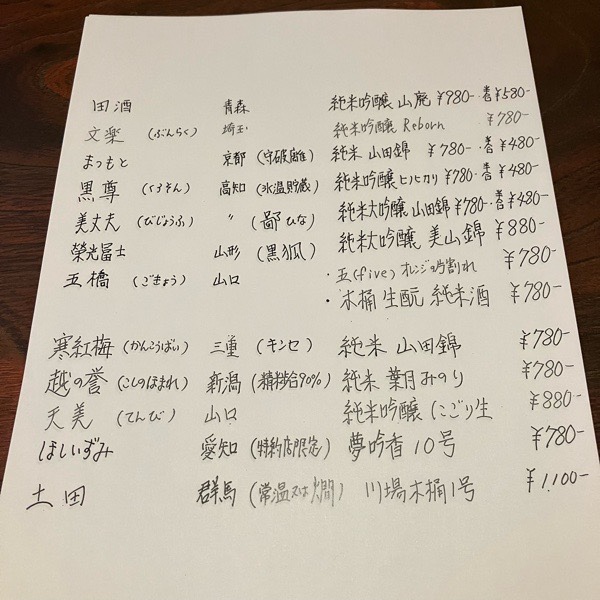 田酒 青森 純米吟醸 山廃 ¥980-・半合¥580-
文楽 (ぶんらく) 埼玉 純米吟醸 Reborn ¥780-
まつもと 京都 (守破離) 純米 山田錦 ¥780-・半合¥480-
黒尊 (くろそん) 高知 (氷温貯蔵) 純米吟醸ヒノヒカリ ¥780-・半合¥480-
美丈夫 (びじょうふ) 〃 (鄙 ひな) 純米大吟醸 山田錦 ¥780-・半合¥480-
榮光冨士 山形 (黒狐) 純米大吟醸 美山錦 ¥880-
五橋 (ごきょう) 山口 ・五(five) オレンジの弓割れ ¥780-
・木桶 生酛 純米酒 ¥780-
寒紅梅 (かんこうばい) 三重 (キンセ) 純米 山田錦 ¥780-
越の誉 (こしのほまれ) 新潟 (精撰歩合90%) 純米 葉月みのり ¥780-
天美 (てんび) 山口 純米吟醸 にごり生 ¥880-
ほしいずみ 愛知 (特約店限定) 夢吟香 10号 ¥780-
土田 群馬 (常温又は燗) 川場木桶1号 ¥1.100-